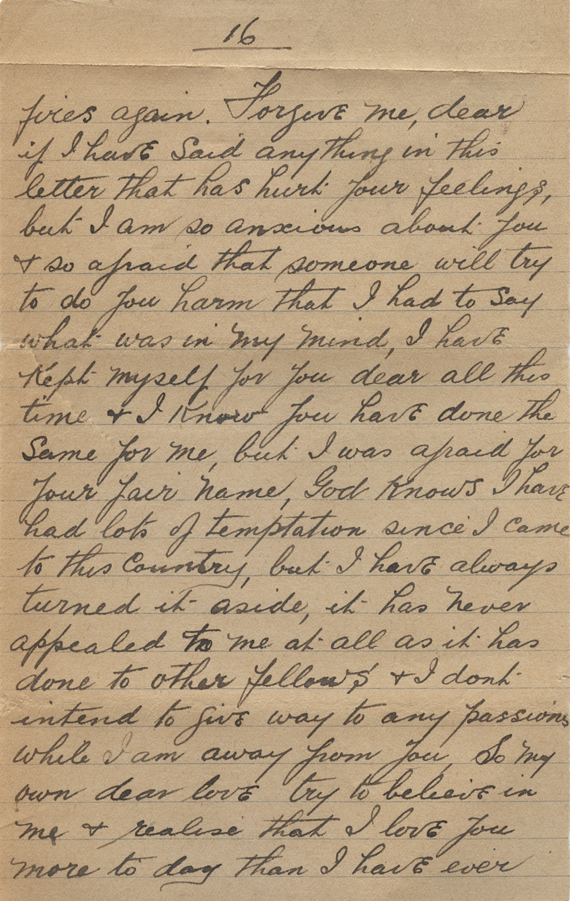 16
fires again. Forgive me, dear
if I have said anything in this
letter that has hurt your feelings,
but I am so anxious about you
& so afraid that someone will try
to do you harm that I had to say
what was in my mind, I have
kept myself for you dear all this
time & I know you have done the
same for me, but I was afraid for
your fair name, God knows I have
had lots of temptation since I came
to this country, but I have always
turned it aside, it has never
appealed to me at all as it has
done to other fellows, & I dont
intend to give way to any passions
while I am away from you, So my
own dear love try to believe in
me & realise that I love you
more to day than I have ever